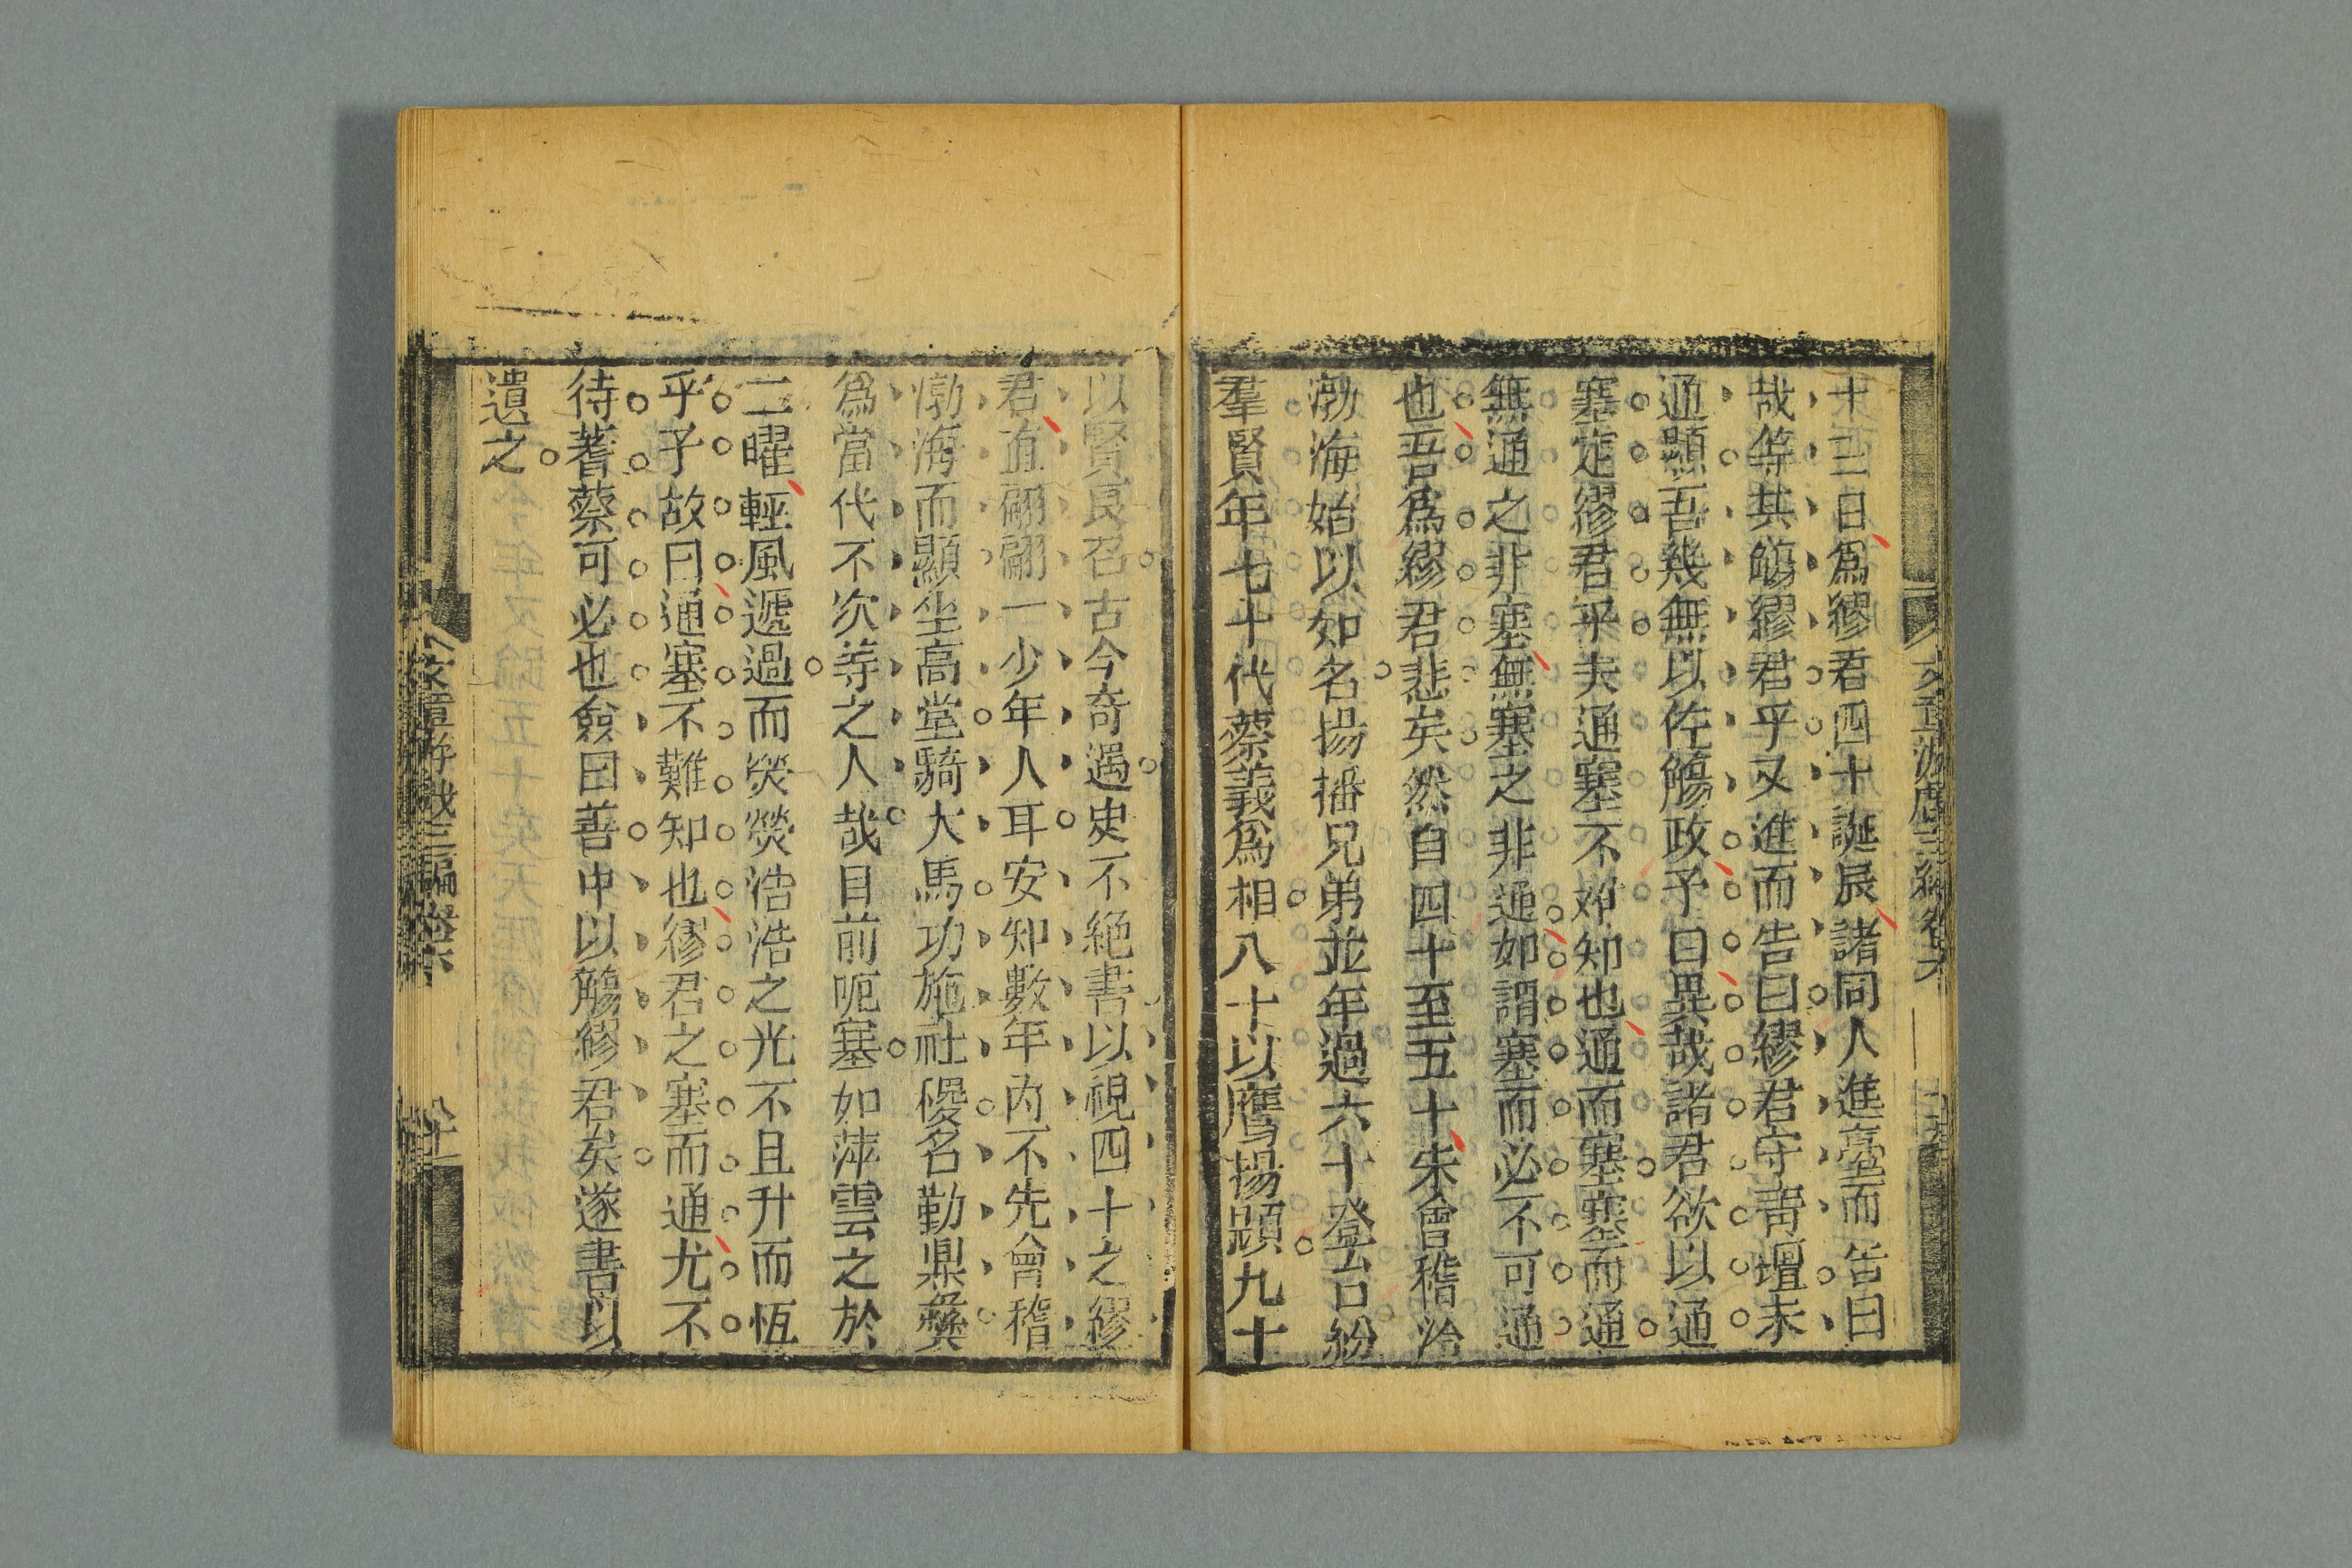 十二日為繆君四十誕辰諸同人進臺而告曰
哉等其觴繆君乎又進而告曰繆君守青壇未
通顯吾幾無以佐觴政予曰異哉諸君欲以通
塞定繆君乎夫通塞不知也通而塞塞而通
無通之非塞無塞之非通如謂塞而必不可通
也吾為繆君悲矣然自四十至五十朱會稽洽
渤海始以如名揚播兄弟並年過六十登台紛
羣賢年七十代蔡義為相八十以鷹揚顯九十
以賢良召古今奇遇史不絕書以視四十之繆
君直翩翩一少年人耳安知數年內不先會稽
渤海而顯坐高堂騎大馬功施社稷名勒鼎彝
為當代不次等之人哉目前呃塞如萍雲之於
二曜輕風遞過而熒熒浩浩之光不且升而恆
乎予故曰通塞不難知也繆君之塞而通尤不
待蓍蔡可必也僉曰善中以觴繆君矣遂書以
遺之
文章游戲三編卷六